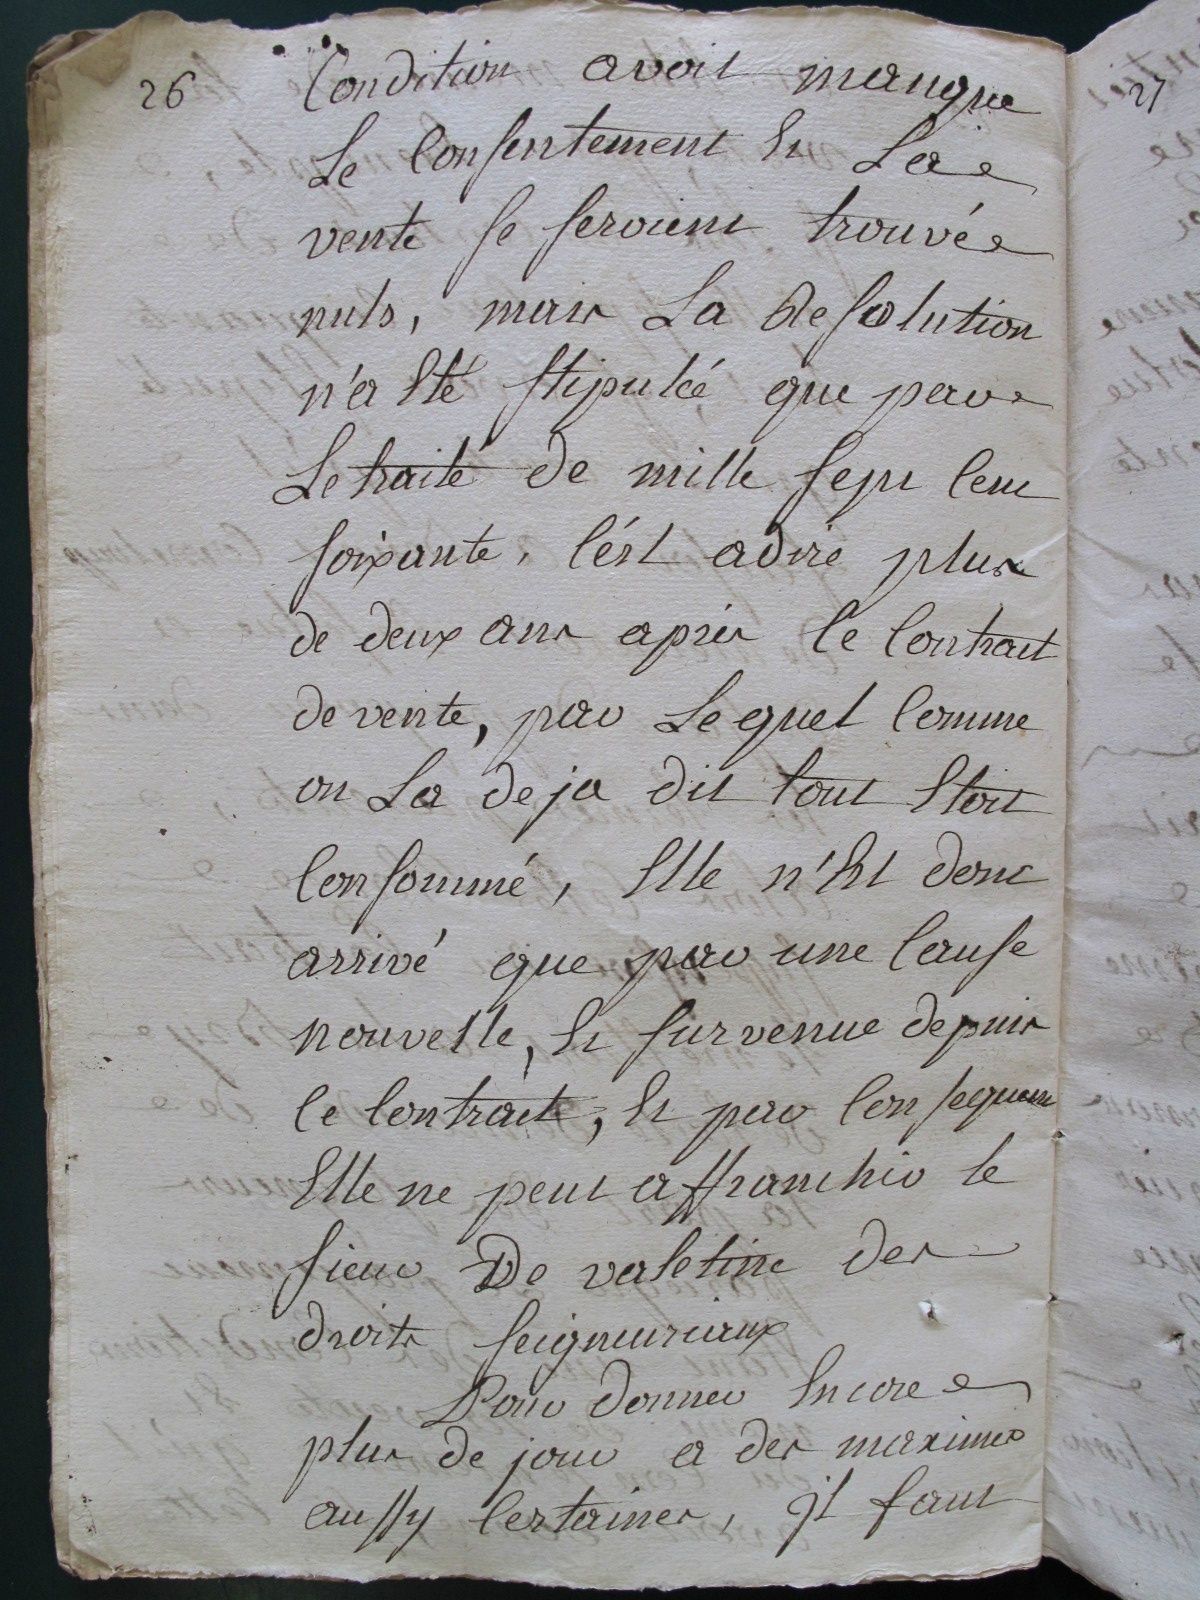 26
Condition avoit manqué
Le consentement et La
vente se seroient trouvés
nuls, mais La Resolution
n'a Eté stipulée que par
Le traité de mille sept cent
soixante, c'ést adire plus
de deux ans aprés le contract
de vente, par Lequel comme
on La deja dit tout Etoit
consommé, Elle n'Est donc
arrivé que par une cause
nouvelle, et survenue depuis
le contract, et par consequent
Elle ne peut affranchir le
sieur De valetine des
droits seigneuriaux
Pour donner Encore
plus de jour a des maximes
aussy certaines, jl faut
27